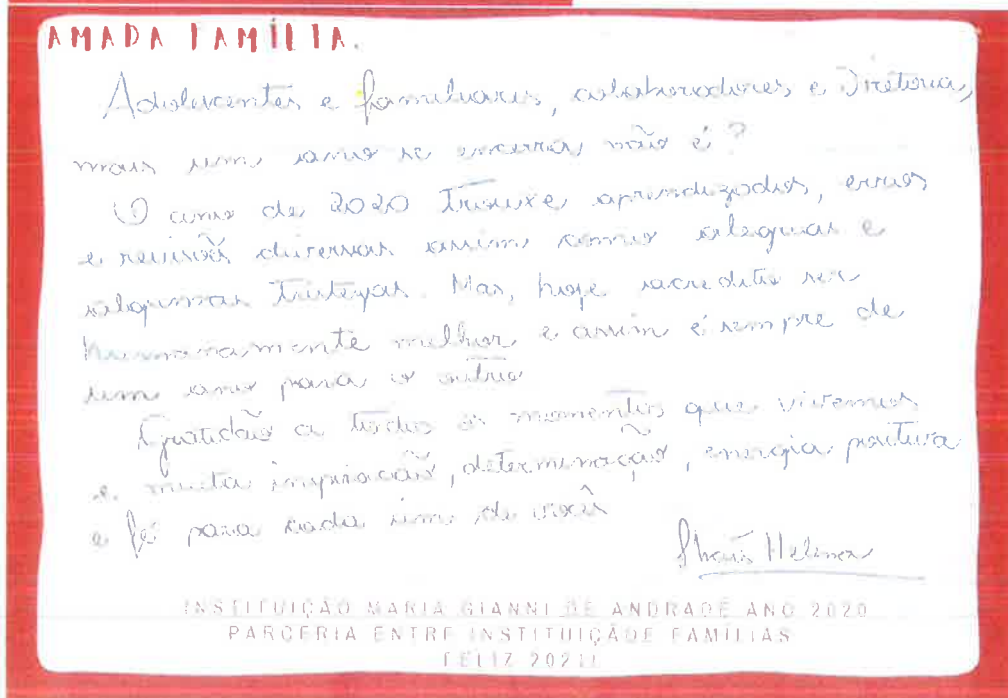 AMADA FAMÍLIA.
Adolescentes e familiares, colaboradores e Diretoria,
mais um ano se encerra, não é?
O ano de 2020 trouxe aprendizados, erros
e revisões diversas assim como alegrias e
algumas tristezas. Mas, hoje acredito ser
humanamente melhor e assim é sempre de
um ano para o outro
Gratidão a todos os momentos que vivemos
e muita inspiração, determinação, energia positiva
e fé para cada um de vocês
Helena
INSTITUIÇÃO MARIA GIANNI DE ANDRADE ANO 2020
PARCERIA ENTRE INSTITUIÇÃO E FAMÍLIAS
FELIZ 2021!